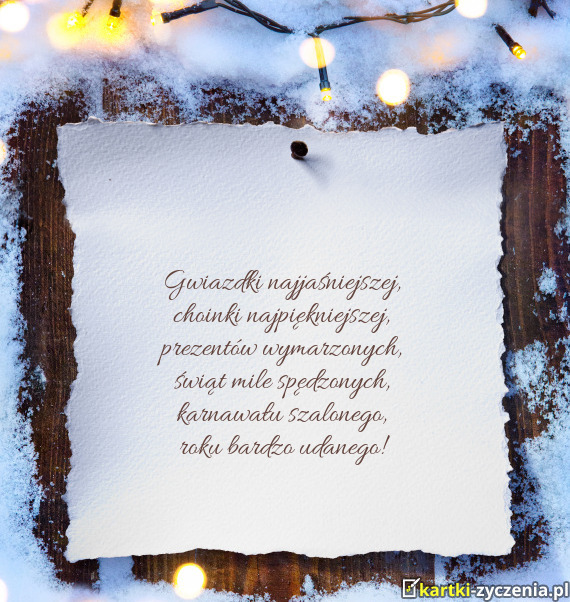 Gwiazdki najjaśniejszej,
choinki najpiękniejszej,
prezentów wymarzonych,
świąt mile spędzonych,
karnawału szalonego,
roku bardzo udanego!
kartki-zyczenia.pl